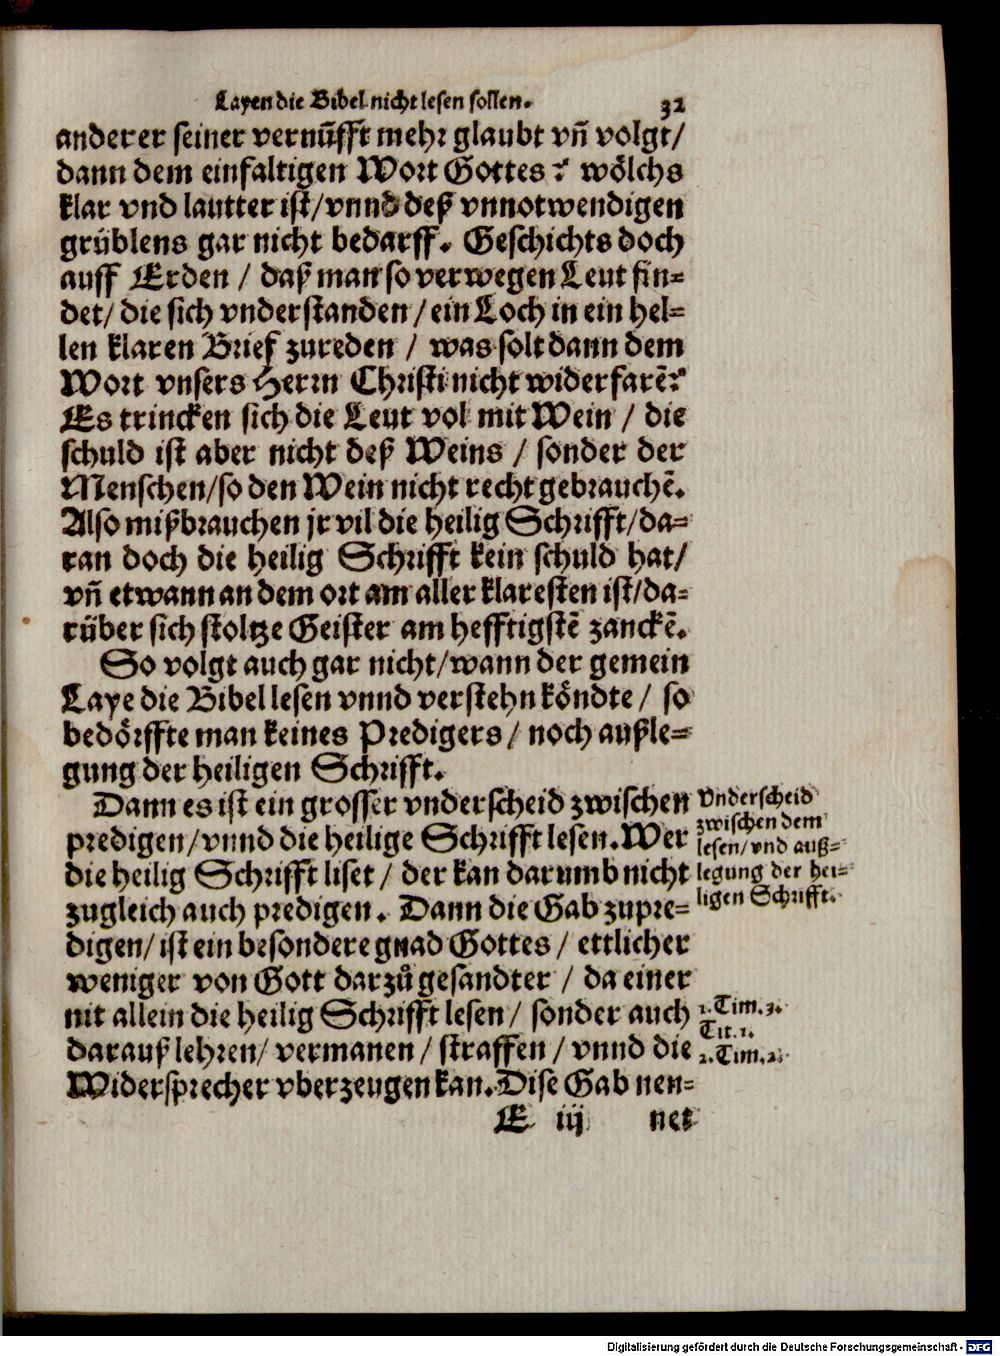 Layen die Bibel nicht lesen sollen. 32
ander er seiner vernũfft mehr glaubt vñ volgt/
dann dem einfaltigen Wort Gottes? wölchs
klar vnd lautter ist/vnnd deß vnnotwendigen
grüblens gar nicht bedarff. Geschichts doch
auff Erden / daß man so verwegen Leut fin-
det/ die sich vnderstanden / ein Loch in ein hel-
len klaren Brief zureden / was solt dann dem
Wort vnsers Herrn Christi nicht widerfarẽ?
Es trincken sich die Leut vol mit Wein / die
schuld ist aber nicht deß Weins / sonder der
Menschen/so den Wein nicht recht gebrauchẽ.
Also mißbrauchen jr vil die heilig Schrifft/da-
ran doch die heilig Schrifft kein schuld hat/
vñ etwann an dem ort am aller klaresten ist/da-
rüber sich stoltze Geister am hefftigstẽ zanckẽ.
So volgt auch gar nicht/wann der gemein
Laye die Bibel lesen vnnd verstehn köndte / so
bedörffte man keines Predigers / noch außle-
gung der heiligen Schrifft.
Dann es ist ein grosser vnderscheid zwischen
predigen/vnnd die heilige Schrifft lesen. Wer
die heilig Schrifft liset / der kan darumb nicht
zugleich auch predigen. Dann die Gab zupre-
digen/ ist ein besondere gnad Gottes / ettlicher
weniger von Gott darzů gesandter / da einer
nit allein die heilig Schrifft lesen / sonder auch
darauß lehren/ vermanen / straffen / vnnd die
Widersprecher vberzeugen kan. Dise Gab nen-
E iij net
Vnderscheid
zwischen dem
lesen/vnd auß-
legung der hei-
ligen Schrifft.
1. Tim. 3.
Tit. 1.
2. Tim. 2.
Digitalisierung gefördert durch die Deutsche Forschungsgemeinschaft - DFG